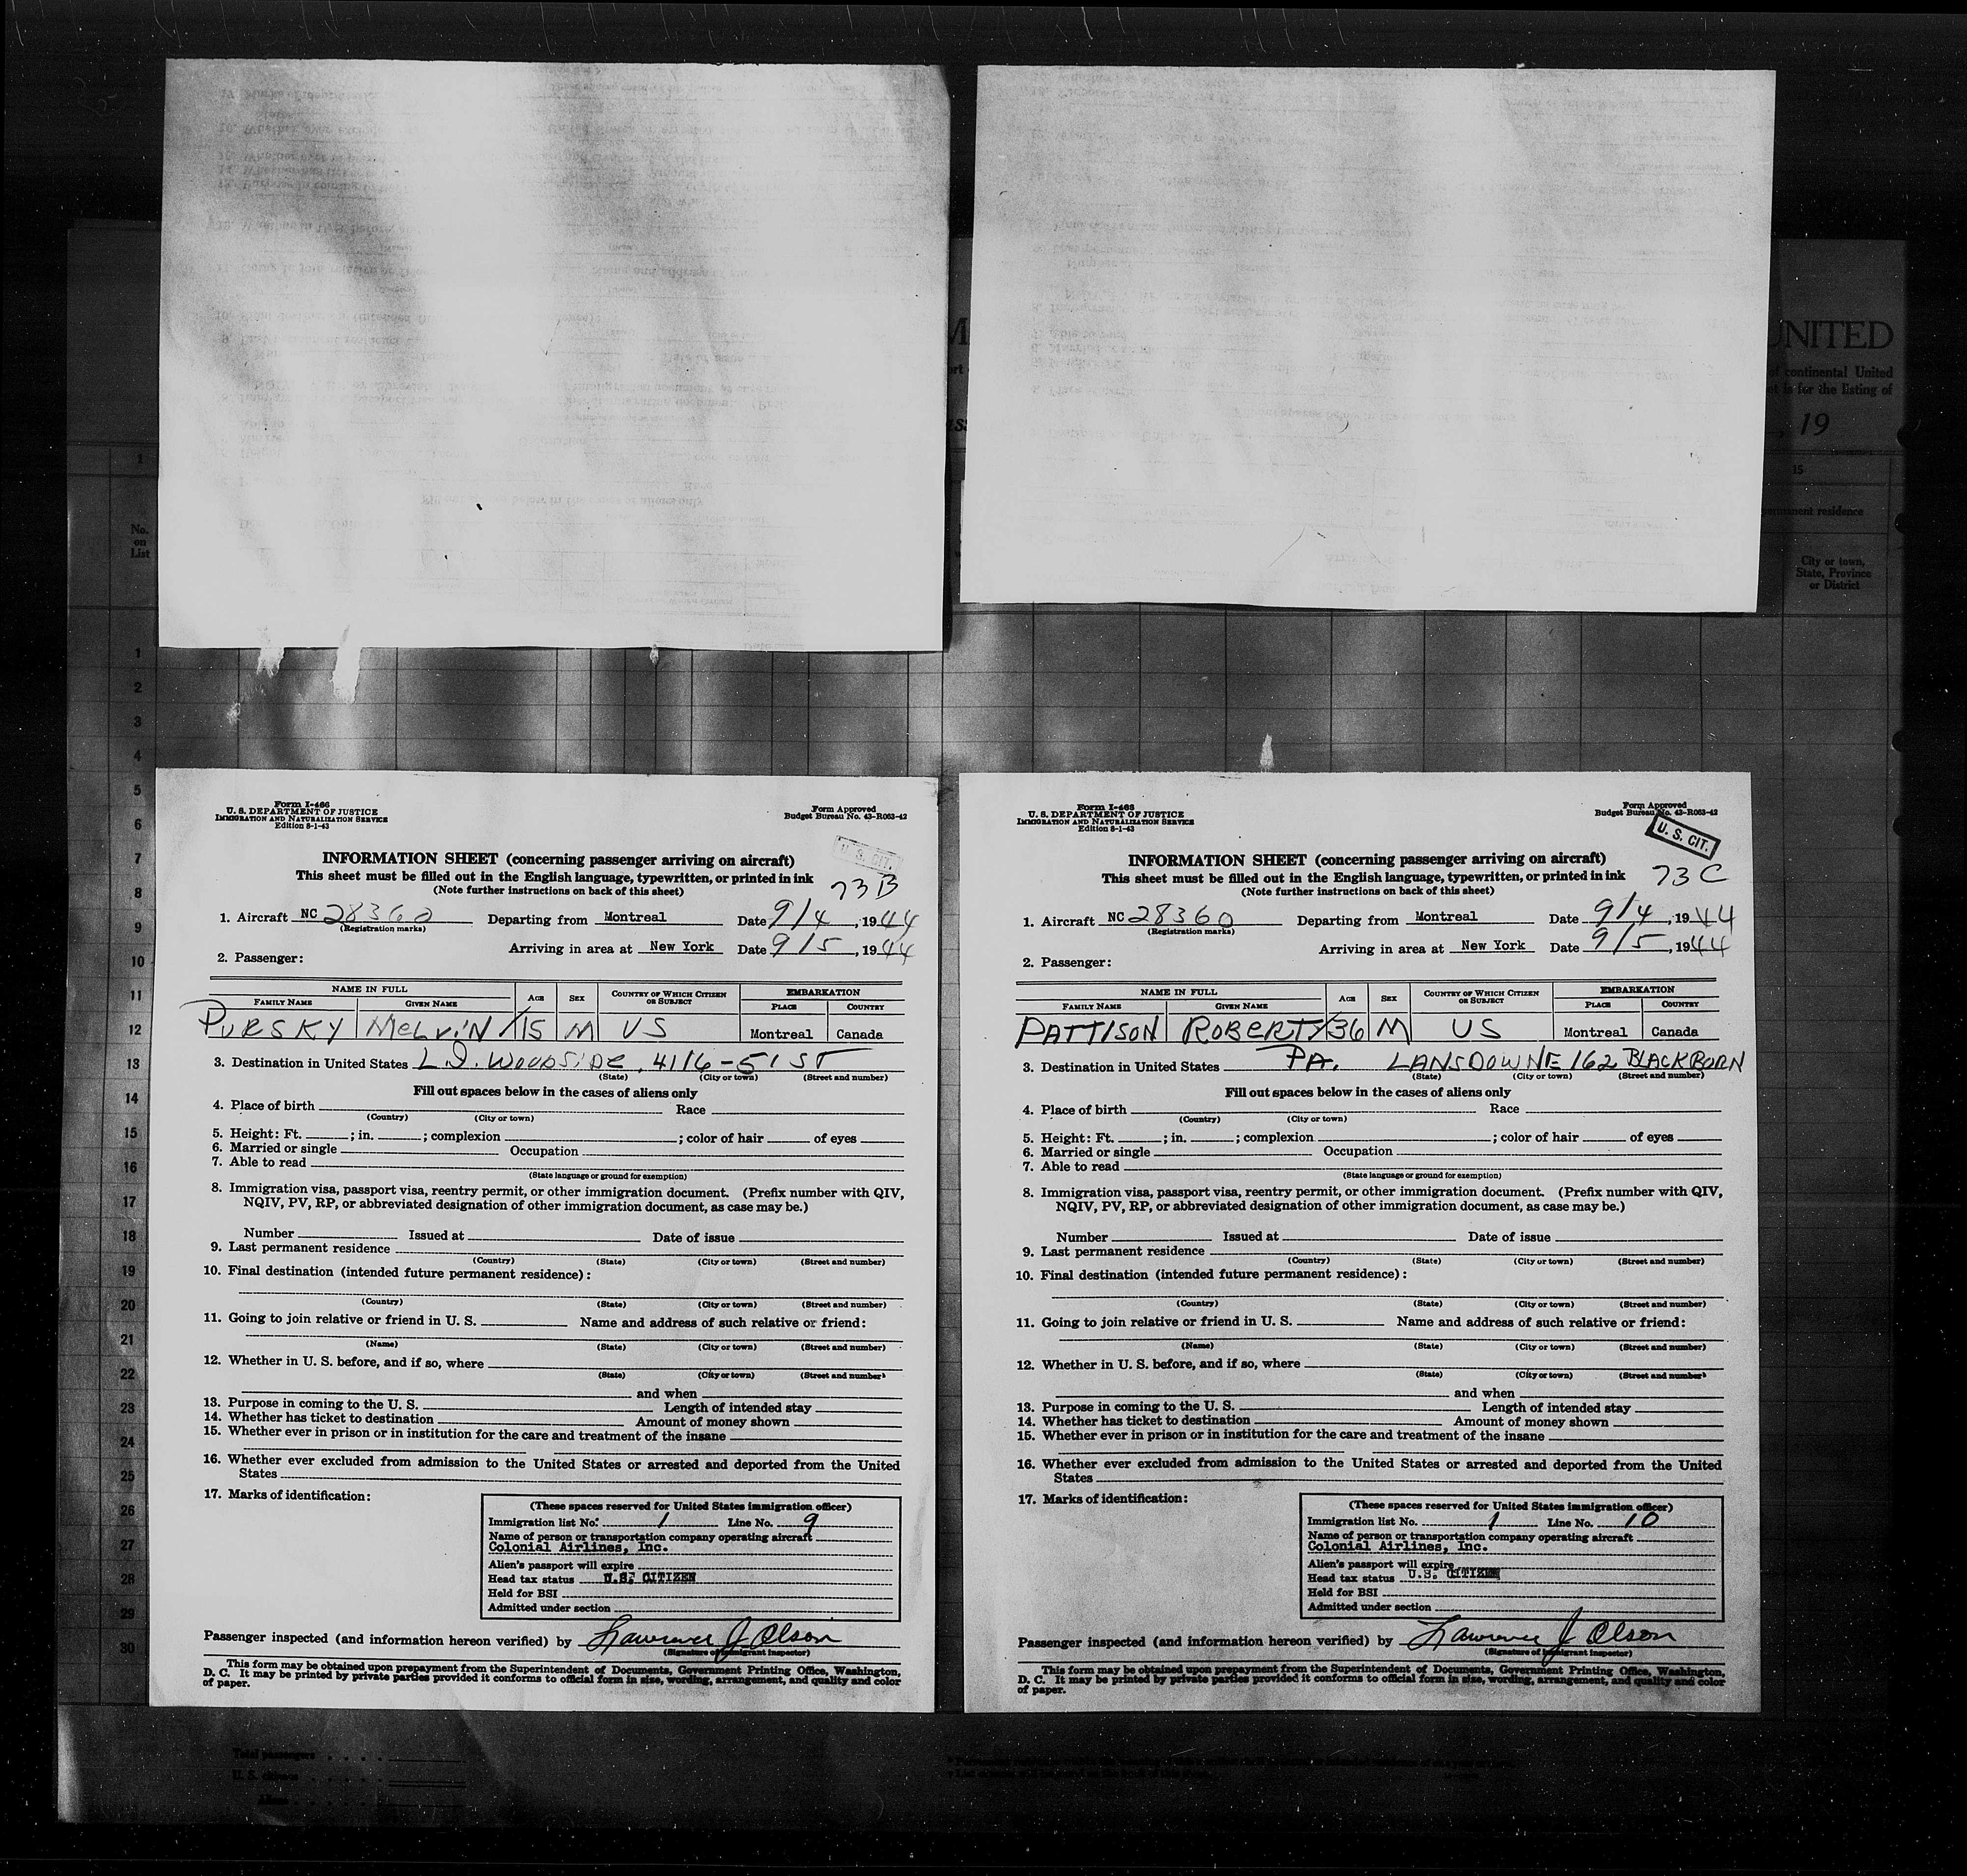 UNITED
of continental United
et is for the listing of
, 19
1
15
permanent residence
No.
on
List
City or town,
State, Province
or District
1
2
3
4
5
6
7
8
9
10
11
12
13
14
15
16
17
18
19
20
21
22
23
24
25
26
27
28
29
30
Form I-466
U. S. DEPARTMENT OF JUSTICE
IMMIGRATION AND NATURALIZATION SERVICE
Edition 8-1-43
Form Approved
Budget Bureau No. 43-R063-42
U. S. CIT.
INFORMATION SHEET (concerning passenger arriving on aircraft)
This sheet must be filled out in the English language, typewritten, or printed in ink
(Note further instructions on back of this sheet)
73 B
1. Aircraft NC 28360 Departing from Montreal Date 9/4, 1944
(Registration marks)
Arriving in area at New York Date 9/5, 1944
2. Passenger:
NAME IN FULL AGE SEX COUNTRY OF WHICH CITIZEN OR SUBJECT EMBARKATION
FAMILY NAME GIVEN NAME PLACE COUNTRY
PURSKY MELVIN 15 M US Montreal Canada
3. Destination in United States L I. WOODSIDE, 4116-51 ST
(State) (City or town) (Street and number)
Fill out spaces below in the cases of aliens only
4. Place of birth Race
(Country) (City or town)
5. Height: Ft. ; in. ; complexion ; color of hair of eyes
6. Married or single Occupation
7. Able to read
(State language or ground for exemption)
8. Immigration visa, passport visa, reentry permit, or other immigration document. (Prefix number with QIV,
NQIV, PV, RP, or abbreviated designation of other immigration document, as case may be.)
Number Issued at Date of issue
9. Last permanent residence
(Country) (State) (City or town) (Street and number)
10. Final destination (intended future permanent residence):
(Country) (State) (City or town) (Street and number)
11. Going to join relative or friend in U. S. Name and address of such relative or friend:
(Name) (State) (City or town) (Street and number)
12. Whether in U. S. before, and if so, where
(State) (City or town) (Street and number)
and when
13. Purpose in coming to the U. S. Length of intended stay
14. Whether has ticket to destination Amount of money shown
15. Whether ever in prison or in institution for the care and treatment of the insane
16. Whether ever excluded from admission to the United States or arrested and deported from the United
States
17. Marks of identification:
(These spaces reserved for United States immigration officer)
Immigration list No. 1 Line No. 9
Name of person or transportation company operating aircraft
Colonial Airlines, Inc.
Alien's passport will expire
Head tax status U.S. CITIZEN
Held for BSI
Admitted under section
Passenger inspected (and information hereon verified) by Lawrence J Olson
(Signature of immigrant inspector)
This form may be obtained upon prepayment from the Superintendent of Documents, Government Printing Office, Washington,
D. C. It may be printed by private parties provided it conforms to official form in size, wording, arrangement, and quality and color
of paper.
Form I-466
U. S. DEPARTMENT OF JUSTICE
IMMIGRATION AND NATURALIZATION SERVICE
Edition 8-1-43
Form Approved
Budget Bureau No. 43-R063-42
U. S. CIT.
INFORMATION SHEET (concerning passenger arriving on aircraft)
This sheet must be filled out in the English language, typewritten, or printed in ink
(Note further instructions on back of this sheet)
73 C
1. Aircraft NC 28360 Departing from Montreal Date 9/4, 1944
(Registration marks)
Arriving in area at New York Date 9/5, 1944
2. Passenger:
NAME IN FULL AGE SEX COUNTRY OF WHICH CITIZEN OR SUBJECT EMBARKATION
FAMILY NAME GIVEN NAME PLACE COUNTRY
PATTISON ROBERT 36 M US Montreal Canada
3. Destination in United States PA. LANSDOWNE 162 BLACKBORN
(State) (City or town) (Street and number)
Fill out spaces below in the cases of aliens only
4. Place of birth Race
(Country) (City or town)
5. Height: Ft. ; in. ; complexion ; color of hair of eyes
6. Married or single Occupation
7. Able to read
(State language or ground for exemption)
8. Immigration visa, passport visa, reentry permit, or other immigration document. (Prefix number with QIV,
NQIV, PV, RP, or abbreviated designation of other immigration document, as case may be.)
Number Issued at Date of issue
9. Last permanent residence
(Country) (State) (City or town) (Street and number)
10. Final destination (intended future permanent residence):
(Country) (State) (City or town) (Street and number)
11. Going to join relative or friend in U. S. Name and address of such relative or friend:
(Name) (State) (City or town) (Street and number)
12. Whether in U. S. before, and if so, where
(State) (City or town) (Street and number)
and when
13. Purpose in coming to the U. S. Length of intended stay
14. Whether has ticket to destination Amount of money shown
15. Whether ever in prison or in institution for the care and treatment of the insane
16. Whether ever excluded from admission to the United States or arrested and deported from the United
States
17. Marks of identification:
(These spaces reserved for United States immigration officer)
Immigration list No. 1 Line No. 10
Name of person or transportation company operating aircraft
Colonial Airlines, Inc.
Alien's passport will expire
Head tax status U.S. CITIZEN
Held for BSI
Admitted under section
Passenger inspected (and information hereon verified) by Lawrence J Olson
(Signature of immigrant inspector)
This form may be obtained upon prepayment from the Superintendent of Documents, Government Printing Office, Washington,
D. C. It may be printed by private parties provided it conforms to official form in size, wording, arrangement, and quality and color
of paper.
Total passengers
U. S. citizens
Aliens